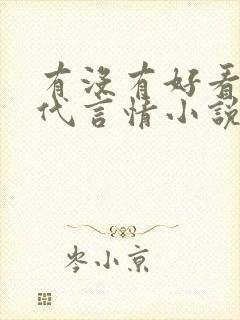 有沒有好看
代言情小說
岑小京